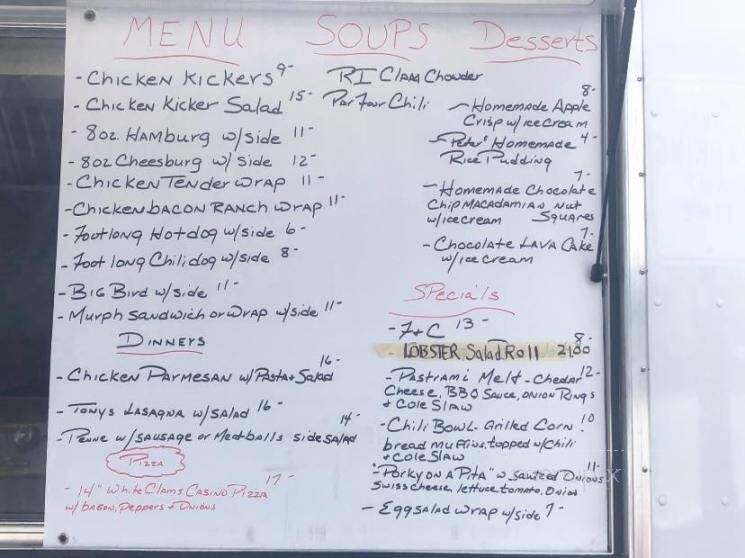 MENU
- Chicken Kickers 9-
- Chicken Kicker Salad 15-
- 8oz. Hamburg w/side 11-
- 8oz Cheesburg w/ side 12-
- Chicken Tender wrap 11-
- Chicken bacon Ranch wrap 11-
- Footlong Hotdog w/side 6-
- Foot long Chilidog w/side 8-
- Big Bird w/side 11-
- Murph Sandwich or wrap w/side 11-
Dinners
- Chicken Parmesan w/ Pasta + Salad 16-
- Tonys Lasagna w/ salad 16-
- Penne w/ sausage or Meatballs side salad 14-
Pizza
- 14" White Clams Casino Pizza 17-
w/ bacon, Peppers + Onions
SOUPS
RI Clam Chowder
Par Four Chili
Desserts
- Homemade Apple 8-
Crisp w/ ice cream
- Peter' Homemade 4-
Rice Pudding
7-
- Homemade Chocolate
Chip Macadamian Nut
w/ice cream Squares
7-
- Chocolate Lava Cake
w/ice cream
Specials
- F+C 13-
8-
- LOBSTER Salad Roll 2100
- Pastrami Melt - Chedar 12-
Cheese, BBQ Sauce, onion Rings
+ Cole Slaw
- Chili Bowl - Grilled Corn 10
bread muffins, topped w/Chili
+ Cole Slaw
"Porky on a Pita" w sauteed Onions 11-
Swiss cheese, lettuce, tomato, Onion
- Eggsalad wrap w/side 7-